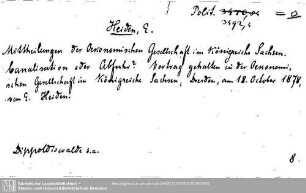 Polit. = 0
2492,4
Heiden, E.
Mittheilungen der Oekonomischen Gesellschaft im Königreiche Sachsen.
Canalisation oder Abfuhr? Vortrag gehalten in der Oekonomi-
schen Gesellschaft im Königreiche Sachsen, Dresden, am 18. October 1878,
von E. Heiden.
Dippoldiswalde s.a.
8
Sächsische Landesbibliothek -
Staats- und Universitätsbibliothek Dresden